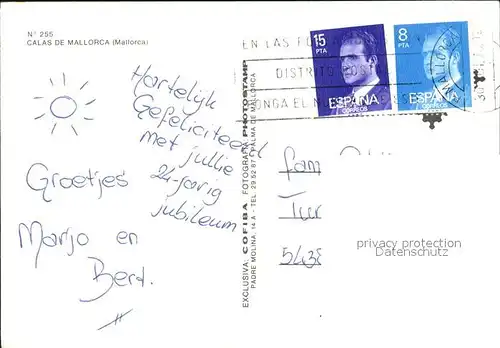 Nº 255
CALAS DE MALLORCA (Mallorca)
Hartelijk
Gefeliciteerd
met jullie
24-jarig
jubileum
Groetjes
Marjo en
Bert.
EXCLUSIVA: COFIBA FOTOGRAFIA PHOTOSTAMP
PADRE MOLINA, 14 A - TEL. 29 52 87 PALMA DE MALLORCA
EN LAS
DISTRITO POS
PONGA EL N
15
PTA
ESPAÑA
CORREOS
8
PTA
ESPAÑA
CORREOS
MALLORCA
fam
Tur
5438
privacy protection
Datenschutz